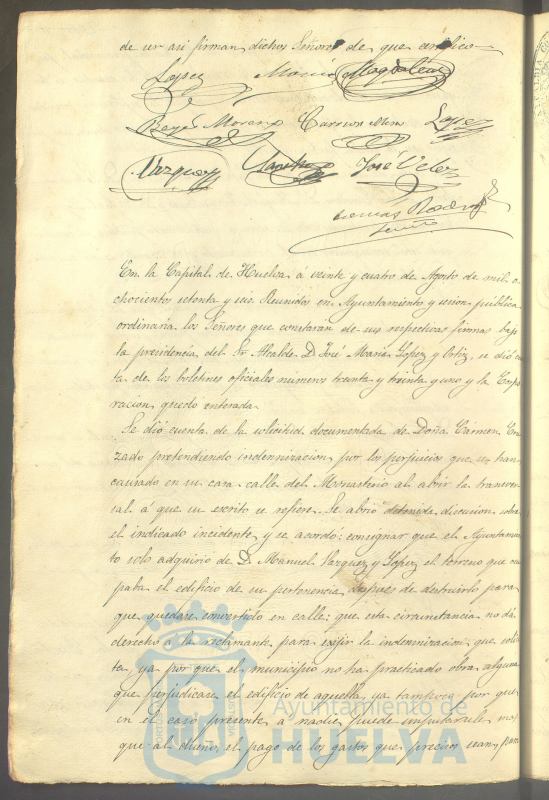 de ser asi firman dichos Señores de que certifico
Lopez Macia Magdalena
Reyes Moreno Carrion Lopez
Vazquez Sanchez José Velez
Tomas
En la Capital de Huelva á veinte y cuatro de Agosto de mil o-
chocientos setenta y seis Reunidos en Ayuntamiento y sesion pública
ordinaria los Señores que constarán de sus respectivas firmas bajo
la presidencia del Sr Alcalde D. José Maria Lopez y Ortiz, se dió cuen-
ta de los boletines oficiales números treinta y treinta y uno y la Corpo-
racion quedó enterada.
Se dió cuenta de la solicitud documentada de Doña Cármen Cru-
zado pretendiendo indemnizacion por los perjuicios que se han
causado en su casa calle del Monasterio al abrir la transver-
sal á que su escrito se refiere. Se abrió detenida discusion sobre
el indicado incidente y se acordó: consignar que el Ayuntamien-
to solo adquirió de D. Manuel Vazquez y Lopez el terreno que ocu-
paba el edificio de su pertenencia despues de destruirlo para
que quedase convertido en calle: que esta circunstancia no dá
derecho á la reclamante para exijir la indemnizacion que solici-
ta, ya por que el municipio no ha practicado obra alguna
que perjudicase el edificio de aquella, ya tampoco por que
en el caso presente á nadie puede imputarsele mas
que al dueño, el pago de los gastos que precisos sean para
Ayuntamiento de
HUELVA